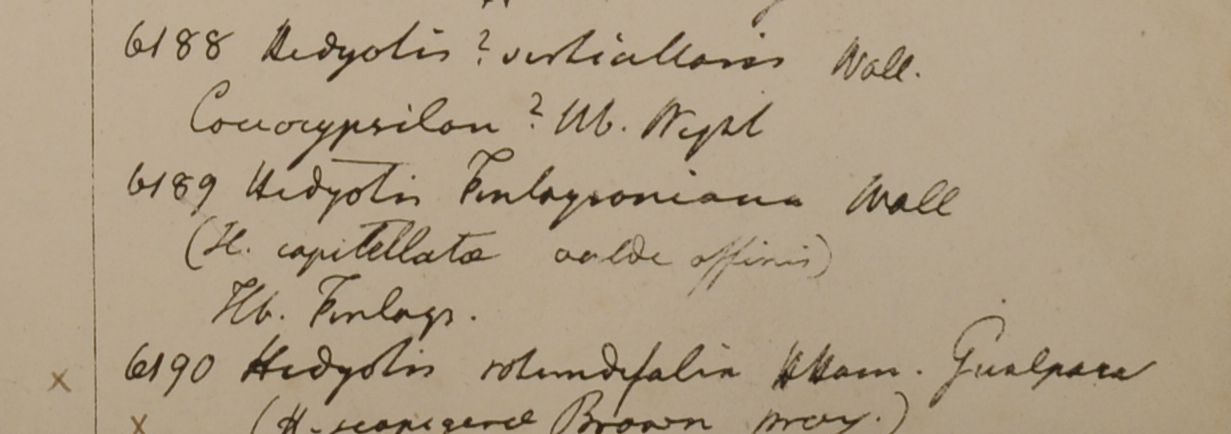 6188 Hedyotis ? verticillaris Wall.
Coccocypsilon ? Hb. Wight
6189 Hedyotis Finlaysoniana Wall
(H. capitellatae valde affinis)
Hb. Finlays.
6190 Hedyotis rotundifolia HHam. Gualpara
(H. Brown